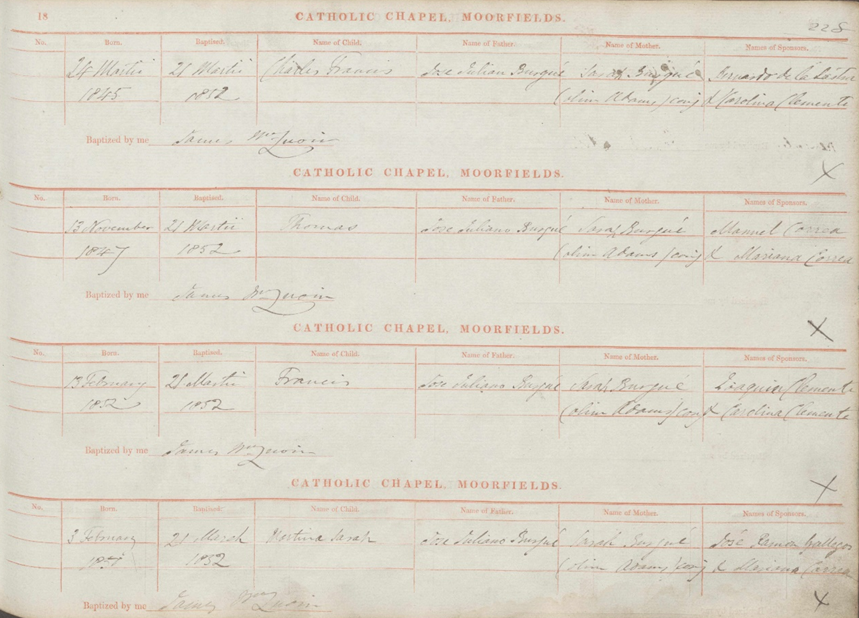 18 CATHOLIC CHAPEL, MOORFIELDS. 228
No. Born. Baptized. Name of Child. Name of Father. Name of Mother. Names of Sponsors.
24 Martii 21 Martii Charles Francis Jose Julian Burgué Sarah Burgué Bernardo de la
1845 1852 (olim Adams) conj & Carolina Clemente
Baptized by me James McQuoin
CATHOLIC CHAPEL, MOORFIELDS.
No. Born. Baptized. Name of Child. Name of Father. Name of Mother. Names of Sponsors.
13 November 21 Martii Thomas Jose Juliano Burgué Sarah Burgué Manuel Correa
1847 1852 (olim Adams) conj & Mariana Correa
Baptized by me James McQuoin
CATHOLIC CHAPEL, MOORFIELDS.
No. Born. Baptized. Name of Child. Name of Father. Name of Mother. Names of Sponsors.
13 February 21 Martii Francis Jose Juliano Burgué Sarah Burgué Joaquin Clemente
1852 (olim Adams) conj & Carolina Clemente
Baptized by me James McQuoin
CATHOLIC CHAPEL, MOORFIELDS.
No. Born. Baptized. Name of Child. Name of Father. Name of Mother. Names of Sponsors.
3 February 21 March Martina Sarah Jose Juliano Burgué Sarah Burgué José Ramon Gallegos
1851 1852 (olim Adams) conj & Mariana Correa
Baptized by me James McQuoin